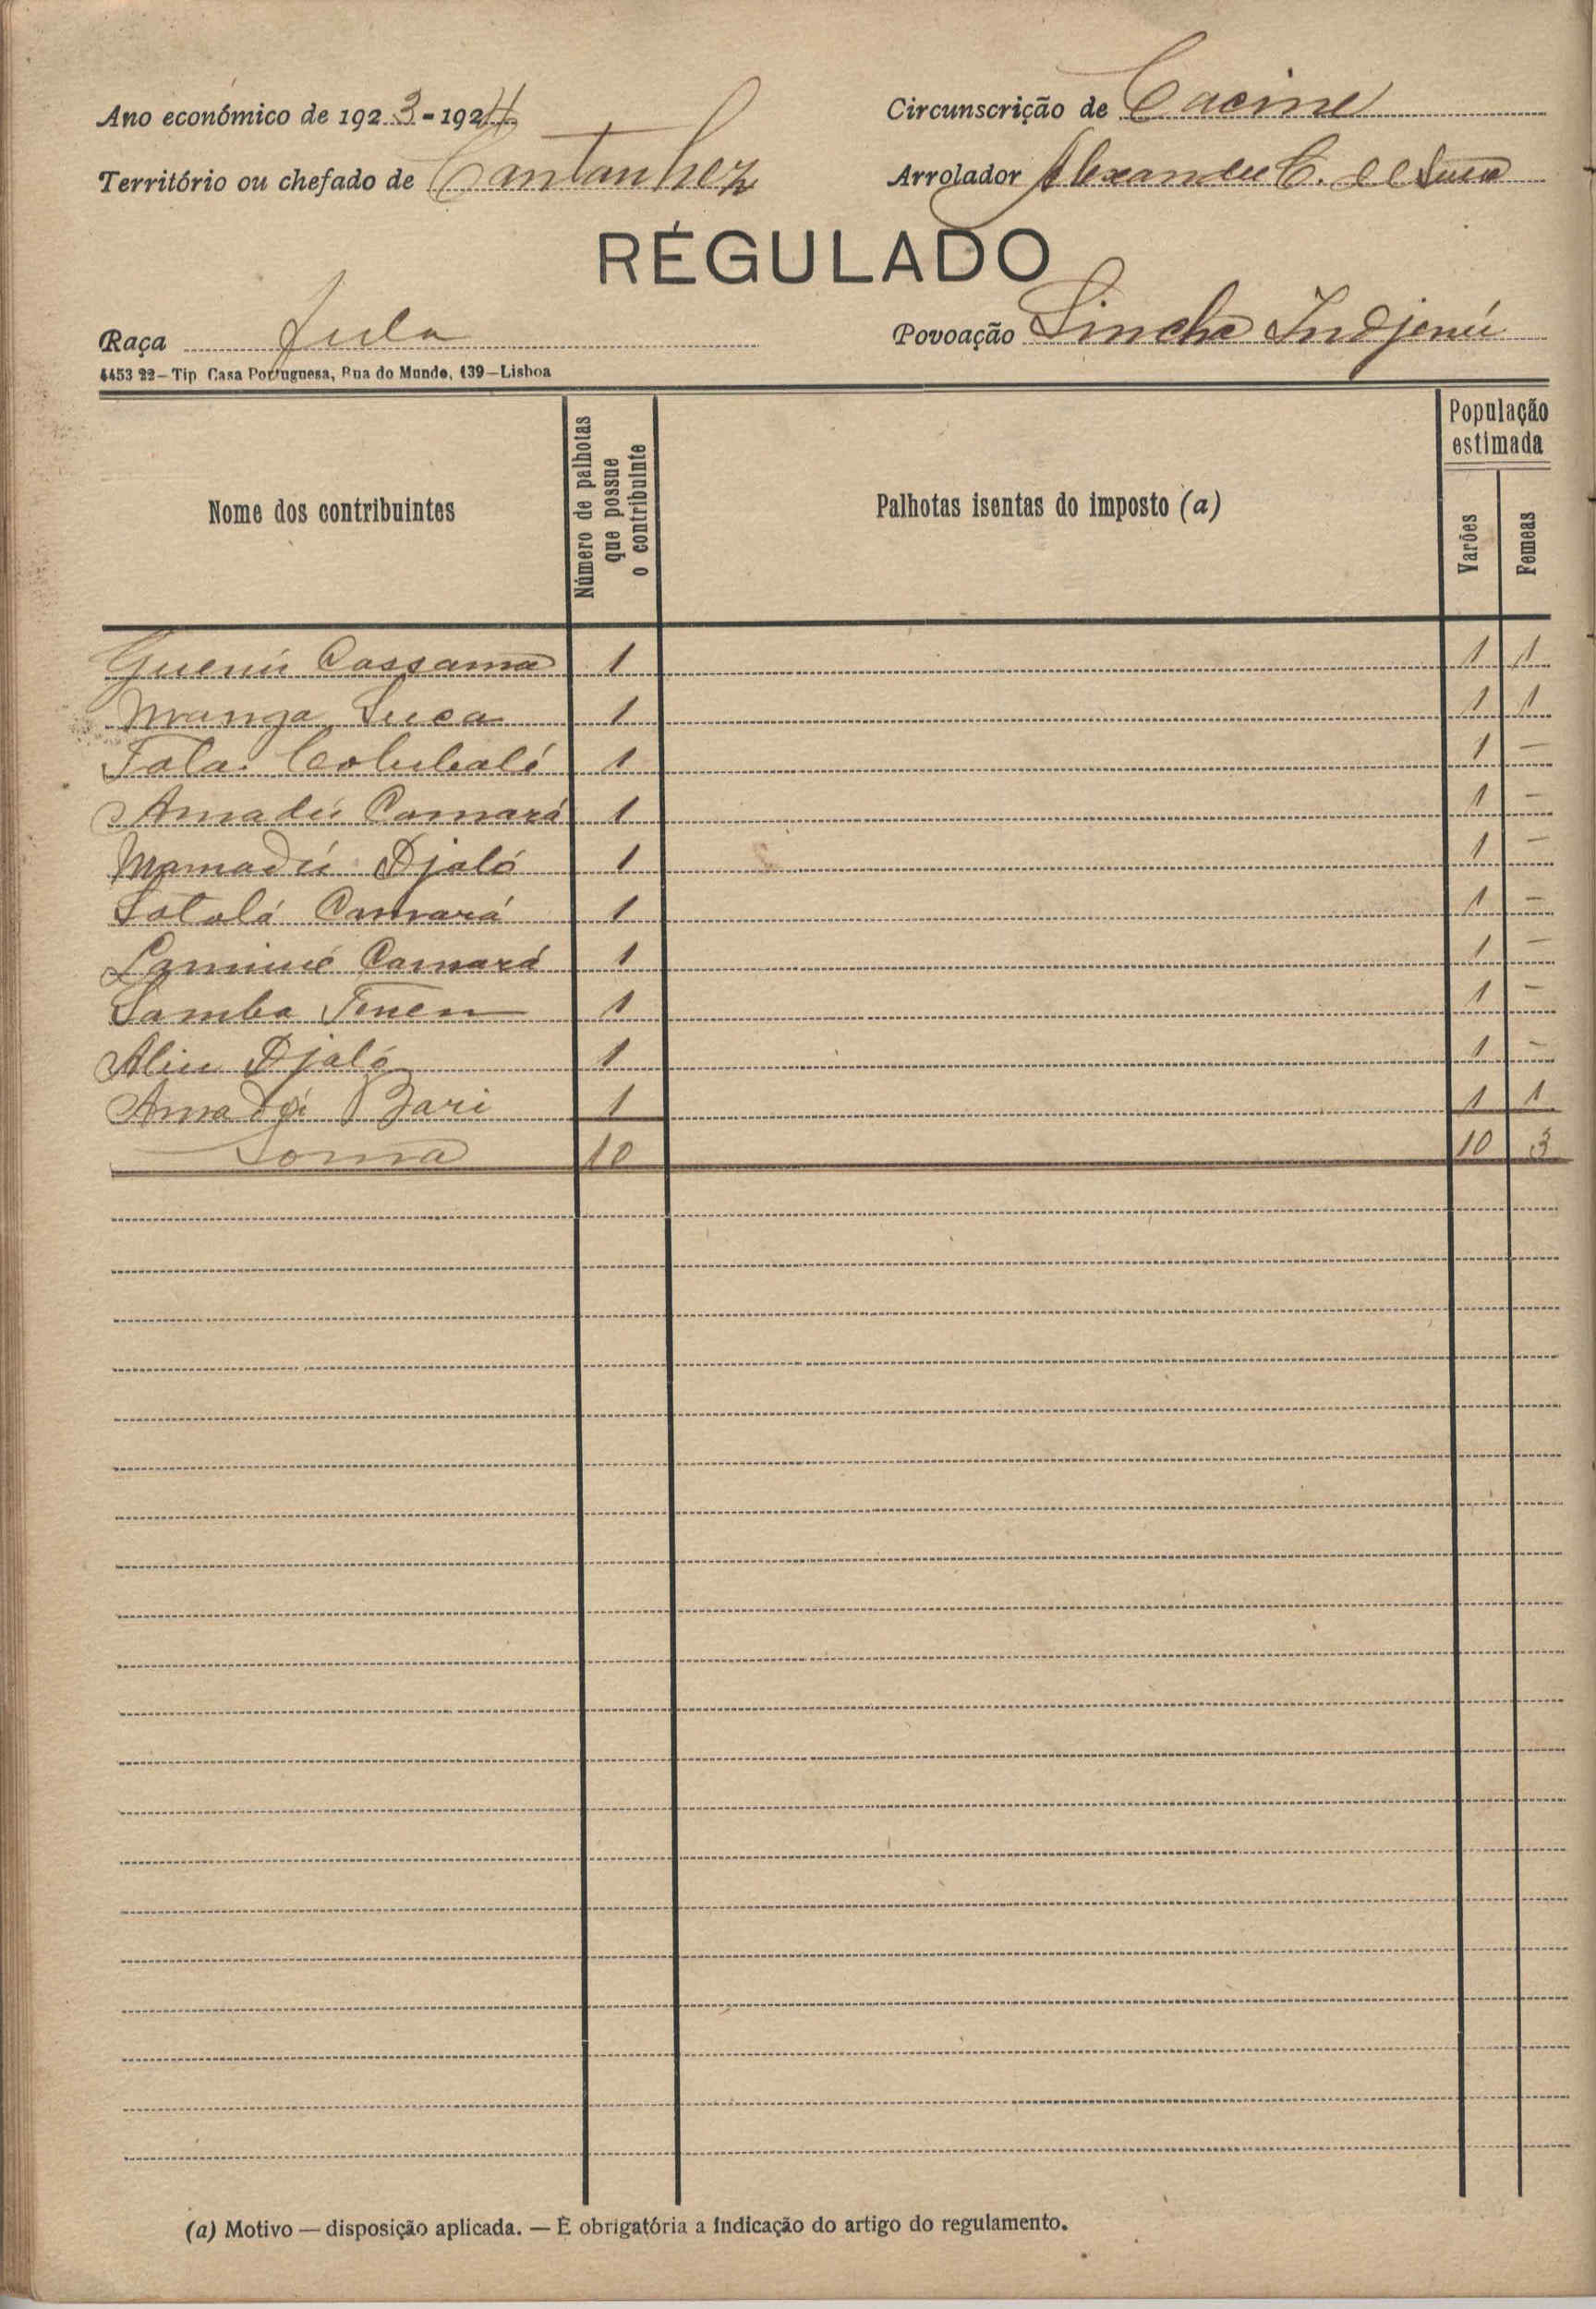 Ano económico de 1923-1924
Circunscrição de Cacine
Território ou chefado de Cantanhez
Arrolador Alexandre C. de
RÉGULADO
Raça Fula
Povoação Sincha Indjenú
4453 22—Tip Casa Portuguesa, Rua do Mundo, 139—Lisboa
Nome dos contribuintes
Número de palhotas que possue o contribuinte
Palhotas isentas do imposto (a)
População estimada
Varões
Femeas
Guenú Cassama 1 1 1
Manga Suca 1 1 1
Tala Colubali 1 1 —
Amadú Camará 1 1 —
Mamadú Djaló 1 1 —
Satalá Camará 1 1 —
Laminé Camará 1 1 —
Samba Tenen 1 1 —
Aliu Djaló 1 1 —
Amadjú Bari 1 1 1
Soma 10 10 3
(a) Motivo — disposição aplicada. — É obrigatória a indicação do artigo do regulamento.